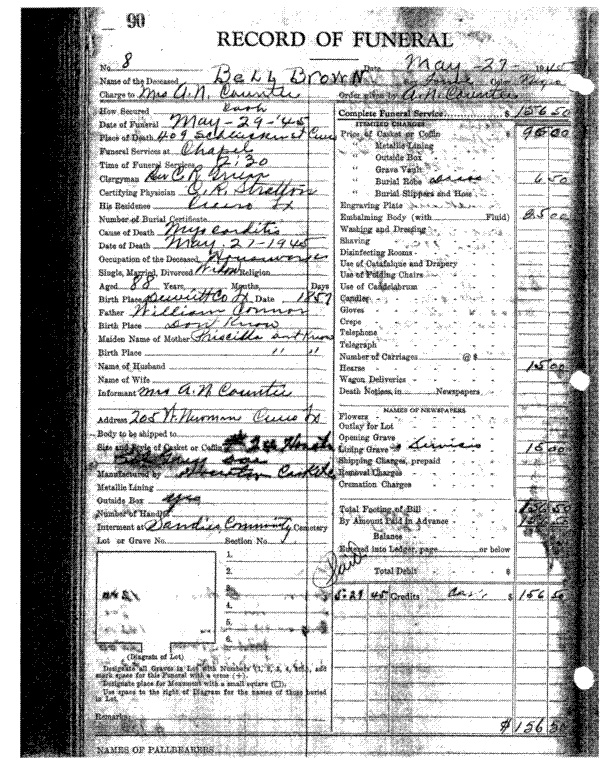 90
RECORD OF FUNERAL
No. 8 Date May - 27 - 1945
Name of the Deceased Betty Brown Color
Charge to Mrs A.N. Counter Order given by A.N. Counter
How Secured Cash
Date of Funeral May - 29 - '45
Place of Death 409
Funeral Services at Chapel
Time of Funeral Services 2:30
Clergyman Rev C.R.
Certifying Physician O.R. Stratton
His Residence Cuero Tx
Number of Burial Certificate
Cause of Death Myocarditis
Date of Death May. 27 - 1945
Occupation of the Deceased Housework
Single, Married, Divorced Widow Religion
Aged 88 Years, Months, Days
Birth Place Dewitt Co Tx Date 1857
Father William Connor
Birth Place Don't Know
Maiden Name of Mother Priscilla don't Know
Birth Place " "
Name of Husband
Name of Wife
Informant Mrs A.N Counter
Address 205 N. Newman Cuero Tx
Body to be shipped to
Size and Style of Casket or Coffin
Manufactured by Casket Co
Metallic Lining
Outside Box yes
Number of Handles
Interment at Sandies Community Cemetery
Lot or Grave No. Section No.
1.
2.
3.
4.
5.
6.
(Diagram of Lot)
Designate all Graves in Lot with Numbers (1, 2, 3, 4, etc.), and
mark space for this Funeral with a cross (+).
Designate place for Monument with a small square (□).
Use space to the right of Diagram for the names of those buried
in Lot.
Remarks:
NAMES OF PALLBEARERS
Complete Funeral Service $ 156 50
ITEMIZED CHARGES
Price of Casket or Coffin $ 95 00
" Metallic Lining
" Outside Box
" Grave Vault
" Burial Robe Dress 6 50
" Burial Slippers and Hose
Engraving Plate
Embalming Body (with Fluid) 25 00
Washing and Dressing
Shaving
Disinfecting Rooms
Use of Catafalque and Drapery
Use of Folding Chairs
Use of Candelabrum
Candles
Gloves
Crepe
Telephone
Telegraph
Number of Carriages @ $
Hearse 15 00
Wagon Deliveries
Death Notices, in Newspapers
NAMES OF NEWSPAPERS
Flowers
Outlay for Lot
Opening Grave
Lining Grave Services 15 00
Shipping Charges, prepaid
Removal Charges
Cremation Charges
Total Footing of Bill 156 50
By Amount Paid In Advance
Balance
Entered into Ledger, page or below
Total Debit $
Paid
5-29 45 Credits Cash $ 156 50
$ 156 50